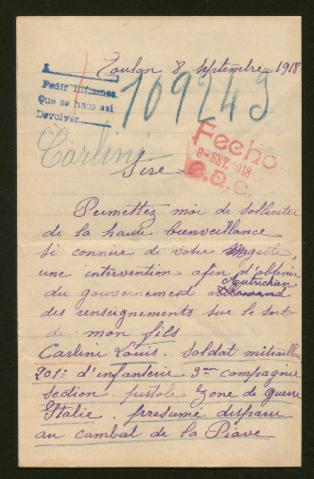 Toulon 8 Septembre 1918
A
Pedir informes
Que se haga asi
Devolver
109243
Fecho
8-SET.1918
Carlini
Sire
Permettez moi de solliciter
de la haute bienveillance
si connue de votre Magesté,
une intervention afin d'obtenir
du gouvernement Autrichien
Allemand
des renseignements sur le sort
de mon fils
Carlini Louis. Soldat mitrailleur
201e d'infanterie 3me compagnie
section. pistole Zone de guerre
Italie. presumé disparu
au combat de la Piave